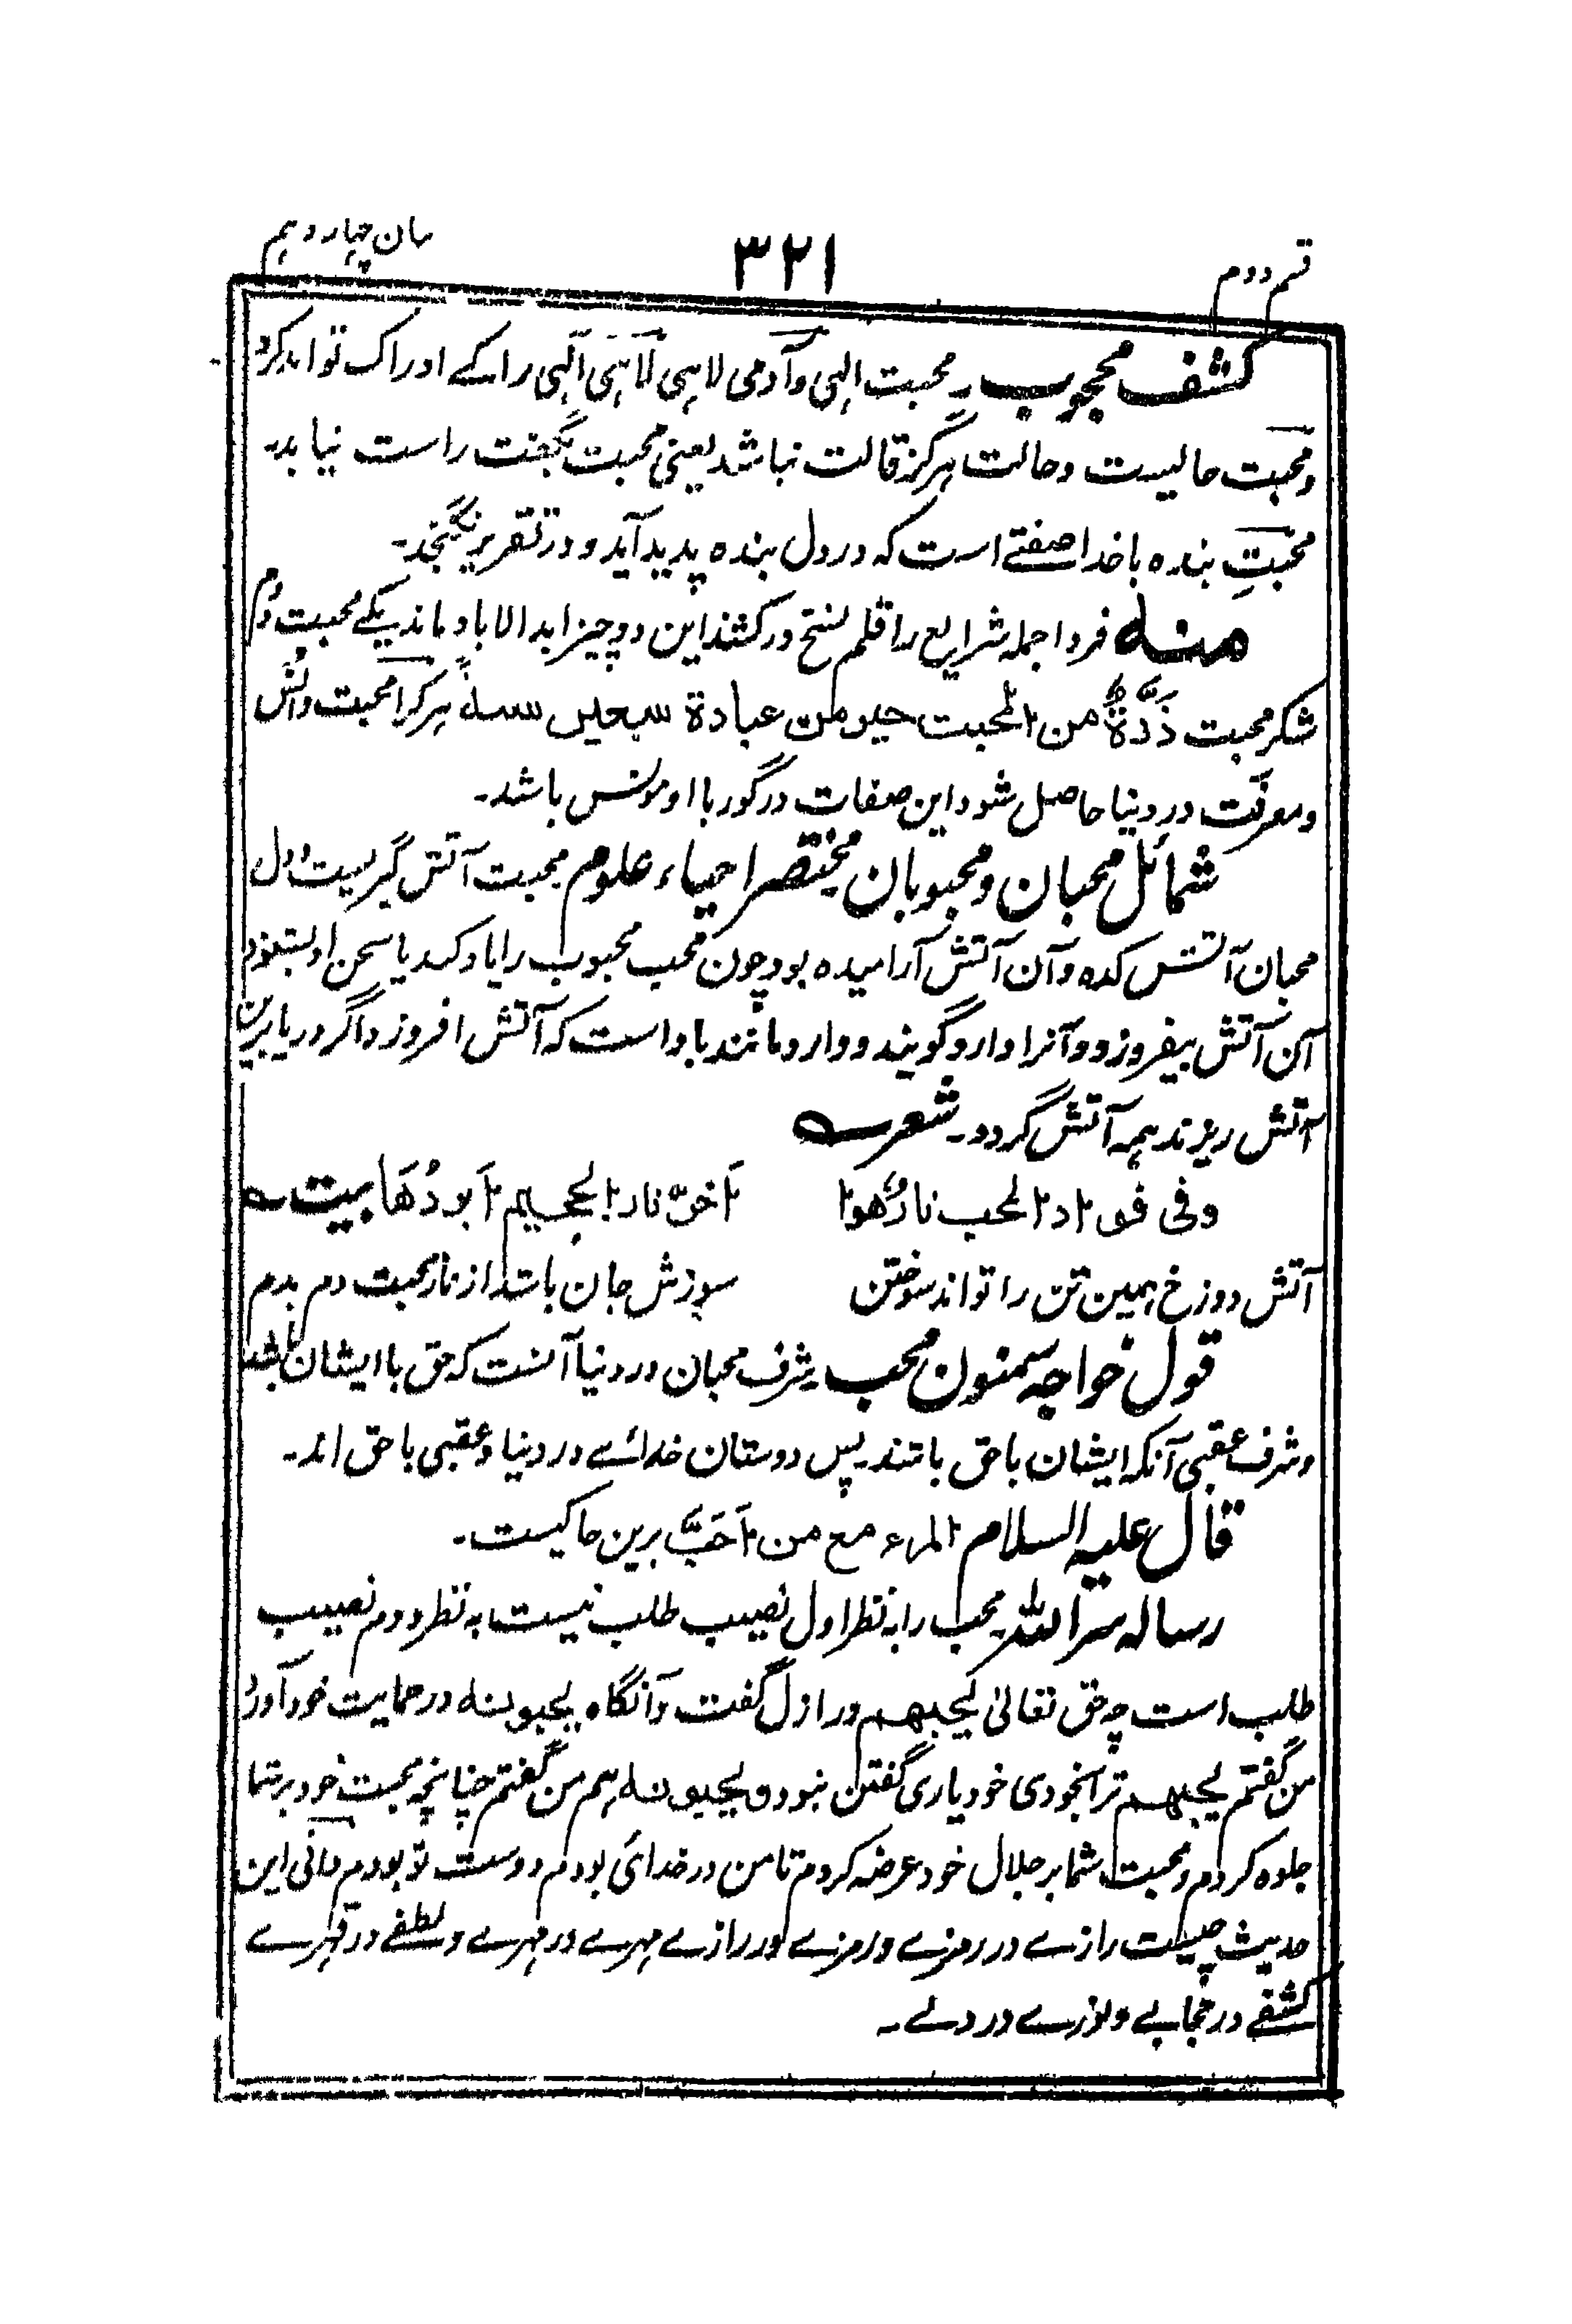 قسم دوم
۳۲۱
بیان چہاردہم
کشف محجوب ۔ محبت الٰہی و آدمی لاہی لاہی الٰہی را کے ادراک تواند کرد
و محبت حالیست و حالت ہرگز قالت نباشد یعنی محبت بگفت راست نیاید۔
محبتِ بندہ با خدا صفتے است کہ در دل بندہ پدید آید و در تقریر نگنجد۔
منہ فردا جملہ شرایع را قلم نسخ در کشند این دو چیز ابد الاباد ماند یکے محبت دوم
شکر محبت ذرّةٌ من المحبت خیر من عبادة سبعین سنة ہر کرا محبت و انس
و معرفت در دنیا حاصل شود این صفات در گور با او مونس باشد۔
شمائل محبان و محبوبان مختصر احیاء علوم محبت آتش گیریست و دل
محبان آتش کدہ و آن آتش آرامیدہ بود چون محب محبوب را یاد کند یا سخن او بشنود
آن آتش بیفروزد و آنرا وارد گویند و وارد مانند باد است کہ آتش افروزد اگر دریا برین
آتش ریزند ہمہ آتش گردد۔ شعر
وفی فؤاد المحب نارُ هوا اَحرّ نار الجحیم اَبردُهَا بیت
آتش دوزخ ہمین تن را تواند سوختن سوزش جان باشد از نار محبت دم بدم
قول خواجہ سمنون محب شرف محبان در دنیا آنست کہ حق با ایشان باشد
و شرف عقبی آنکہ ایشان با حق باشند پس دوستان خدائے در دنیا و عقبی با حق اند۔
قال علیہ السلام المرء مع من اَحَبَّ برین حاکیست۔
رسالہ سر اللہ محب را بہ نظر اول نصیب طلب نیست بہ نظر دوم نصیب
طلب است چہ حق تعالیٰ یحبہم در ازل گفت و آنگاہ یحبونہ در حمایت خود آورد
من گفتم یحبہم ترا بخودی خود یاری گفتن نبود و یحبونہ ہم من گفتم چنانچہ محبت خود بر شما
جلوہ کردم و محبت شما بر جلال خود عرضہ کردم تا من در خدائی بودم دوست تو بودم دانی این
حدیث چیست رازے در رمزے و رمزے در رازے مہرے در مہرے و لطفے در قہرے
کشفے در حجابے و نورے در دلے ۔